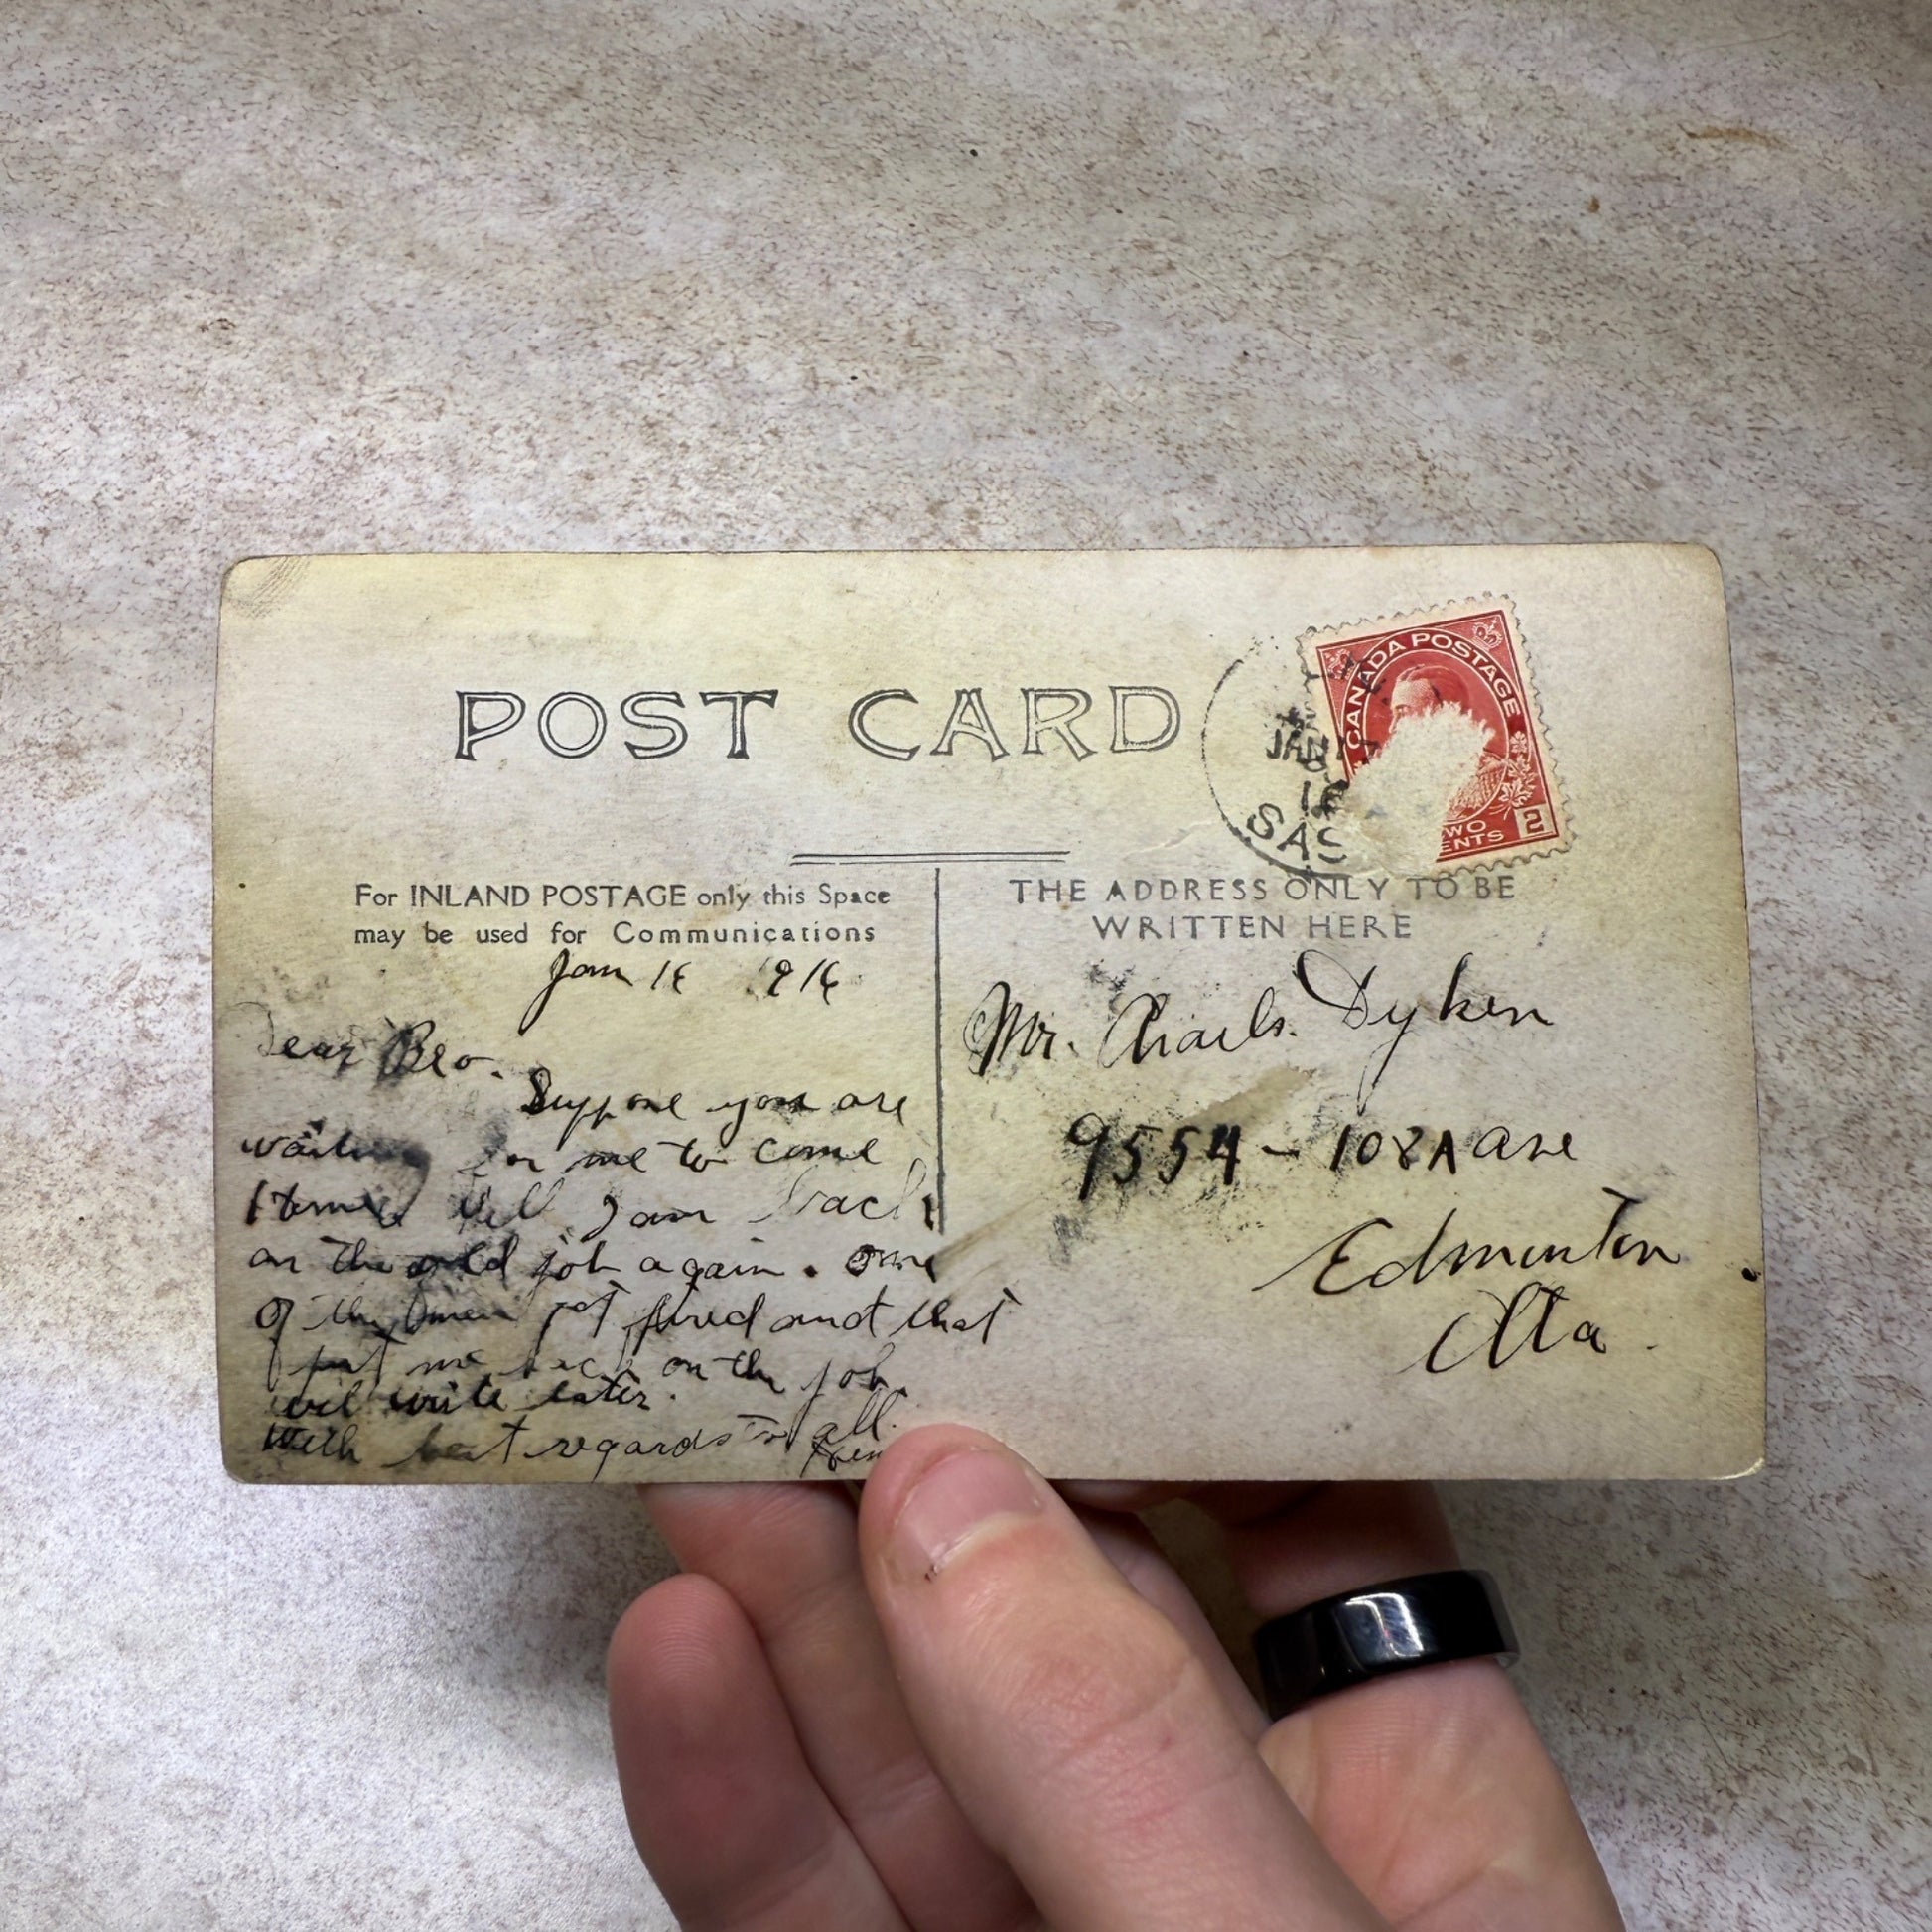 POST CARD
CANADA POSTAGE
2
JAN 17
SAS
For INLAND POSTAGE only this Space
may be used for Communications
THE ADDRESS ONLY TO BE
WRITTEN HERE
Jan 16 1916
Dear Bro.
Suppose you are
waiting for me to come
Home Well I am back
on the old job again. One
of the men got fired and that
put me back on the job
will write later.
With best regards to all.
Mr. Charls. Dyken
9554 - 108A ave
Edmonton
Alta.